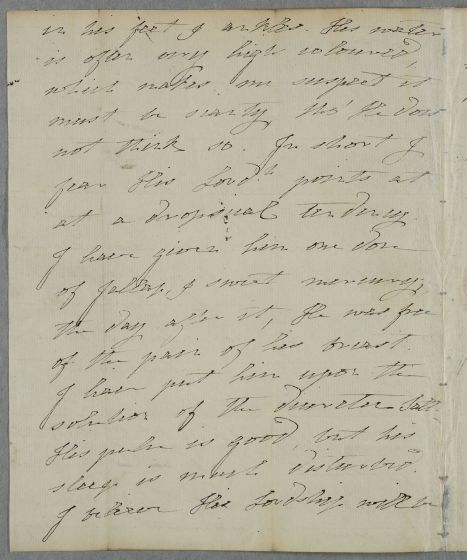 in his feet & ankles. His water
is often very high coloured,
which makes me suspect it
must be scanty, tho' He does
not think so. In short I
fear His Lord.h points at
at a dropsical tendency.
I have given him one dose
of Jallap, & sweet mercury,
the day after it, He was free
of the pain of his breast.
I have put him upon the
solution of the diuretic Salt.
His pulse is good, but his
sleep is much disturbed.
I believe His Lordship will be